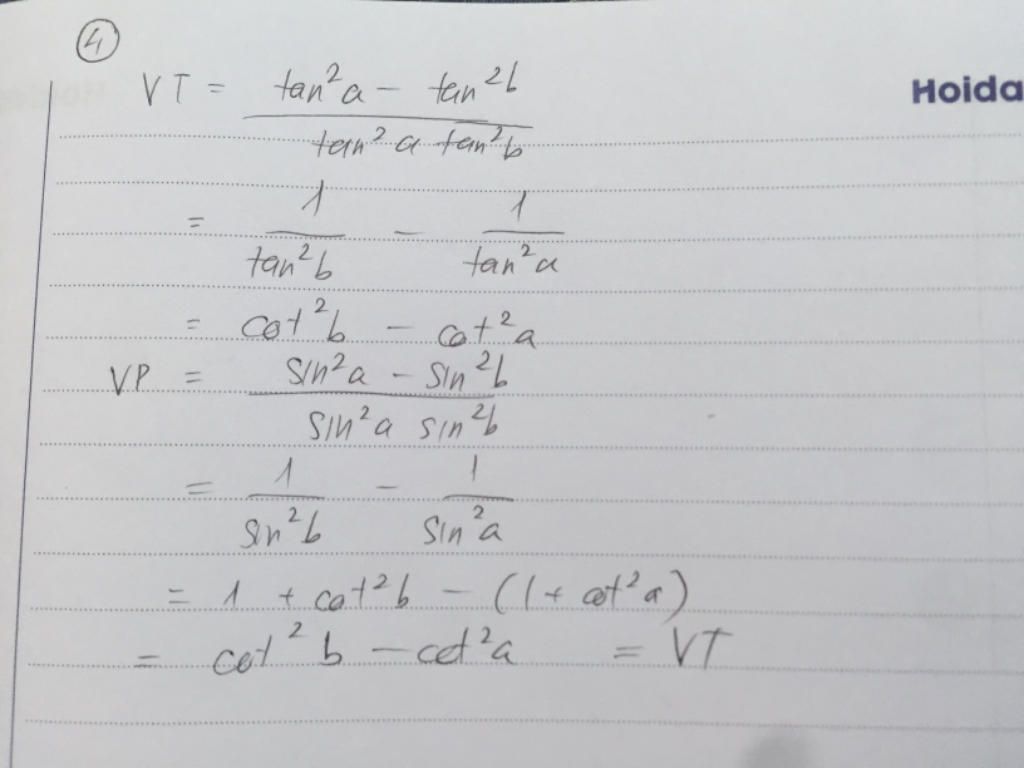 ④
VT = \frac{tan²a - tan²b}{tan²a tan²b}
Hoida
= \frac{1}{tan²b} - \frac{1}{tan²a}
= cot²b - cot²a
VP = \frac{sin²a - sin²b}{sin²a sin²b}
= \frac{1}{sin²b} - \frac{1}{sin²a}
= 1 + cot²b - (1 + cot²a)
= cot²b - cot²a = VT